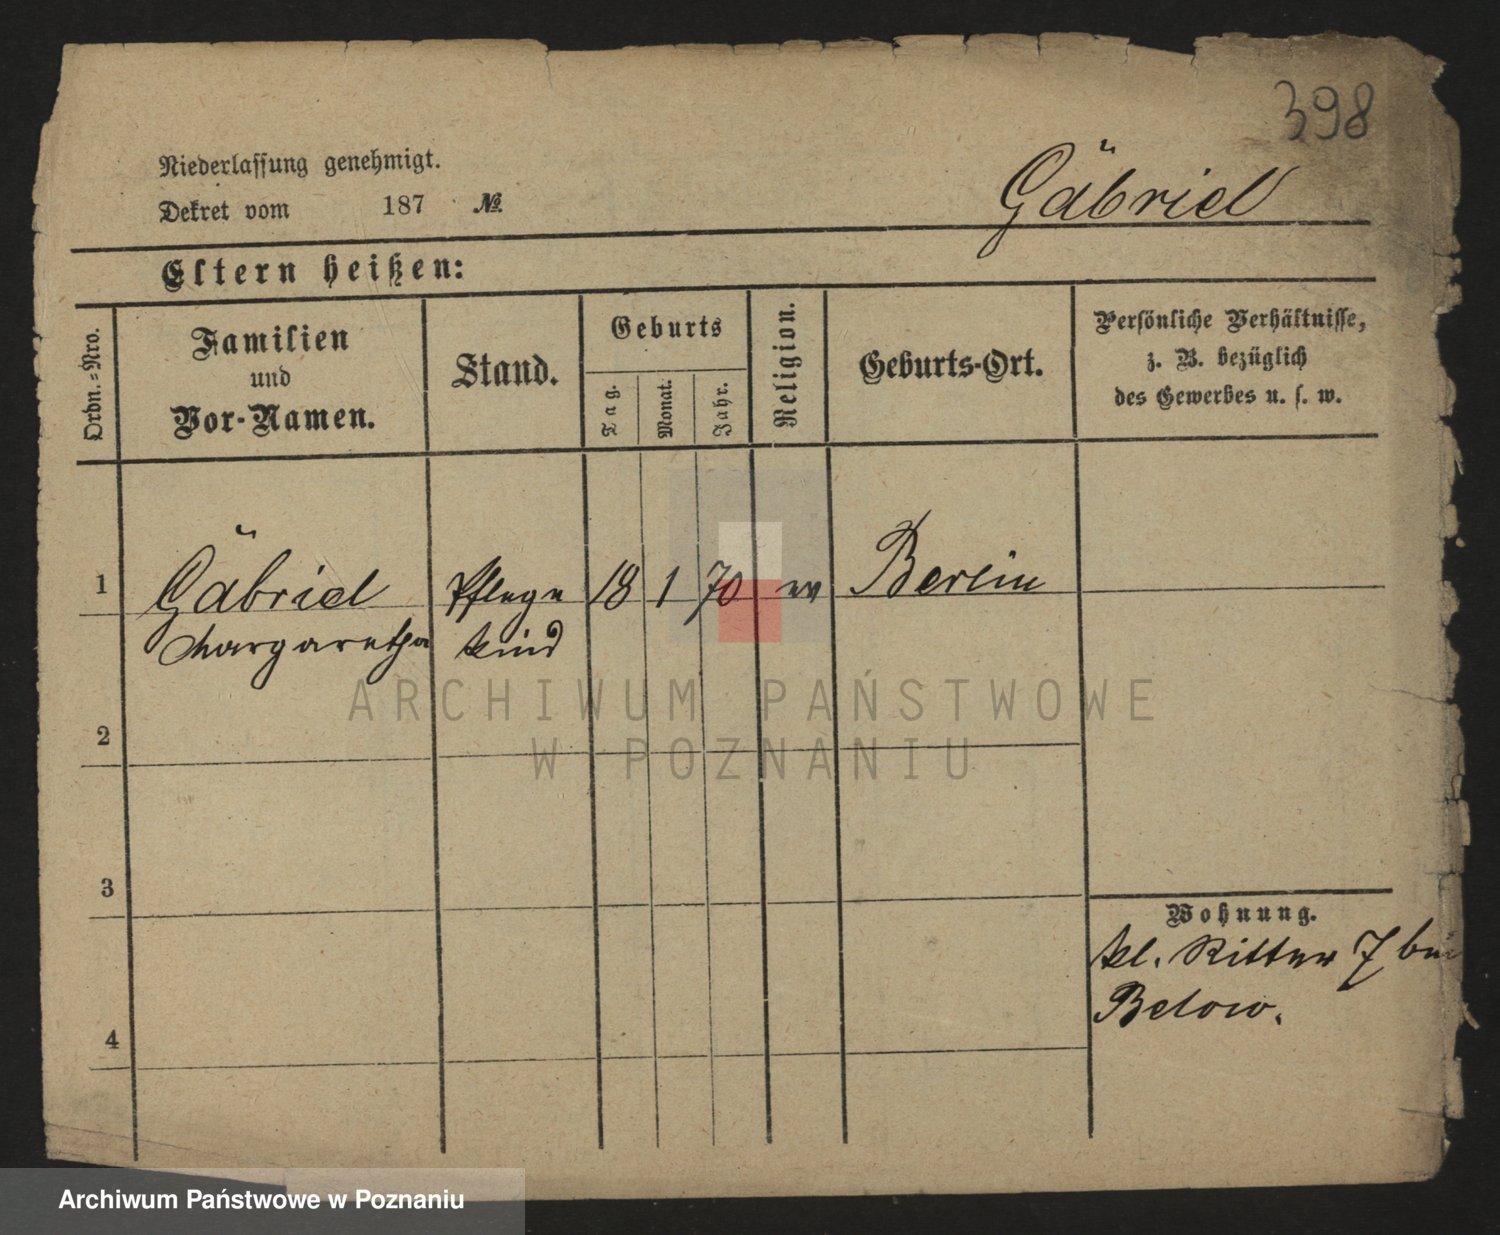 398
Niederlassung genehmigt.
Dekret vom 187 №
Gäbriel
Eltern heißen:
Ordn.=Nro.
Familien
und
Vor-Namen.
Stand.
Geburts
Tag.
Monat.
Jahr.
Religion.
Geburts-Ort.
Persönliche Verhältnisse,
z. B. bezüglich
des Gewerbes u. s. w.
1 Gäbriel Pflege 18 1 70 ev Berlin
Margaretha kind
2
3
4
Wohnung.
kl. Ritter 7 bei
Below.
ARCHIWUM PAŃSTWOWE
W POZNANIU
Archiwum Państwowe w Poznaniu